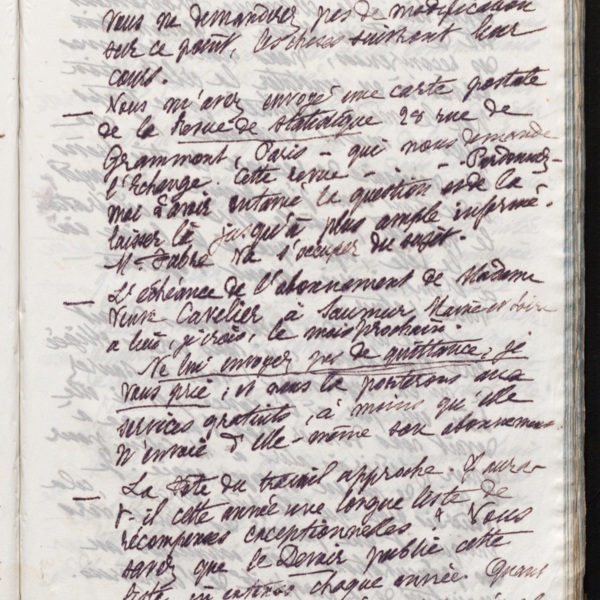 Vous ne demanderez pas de modification
sur ce point, les choses suivront leur
cours.
— Vous m'avez envoyé une carte postale
de la Revue de statistique 28 rue de
Grammont, Paris - qui nous demande
l'Echange. Cette revue - - - Pardonnez-
moi d'avoir entamé la question et de la
laisser là jusqu'à plus ample informé.
Mr Fabre va s'occuper du sujet.
— L'échéance de l'abonnement de Madame
Veuve Cavelier à Saumur Maine et Loire
a lieu, je crois, le mois prochain.
Ne lui envoyez pas de quittance, je
vous prie; et nous la porterons aux
services gratuits, à moins qu'elle
n'envoie d'elle-même son abonnement.
— La Fête du travail approche. Y aura-
t-il cette année une longue liste de
récompenses exceptionnelles? Vous
savez que le Devoir publie cette
liste in extenso chaque année. Quant